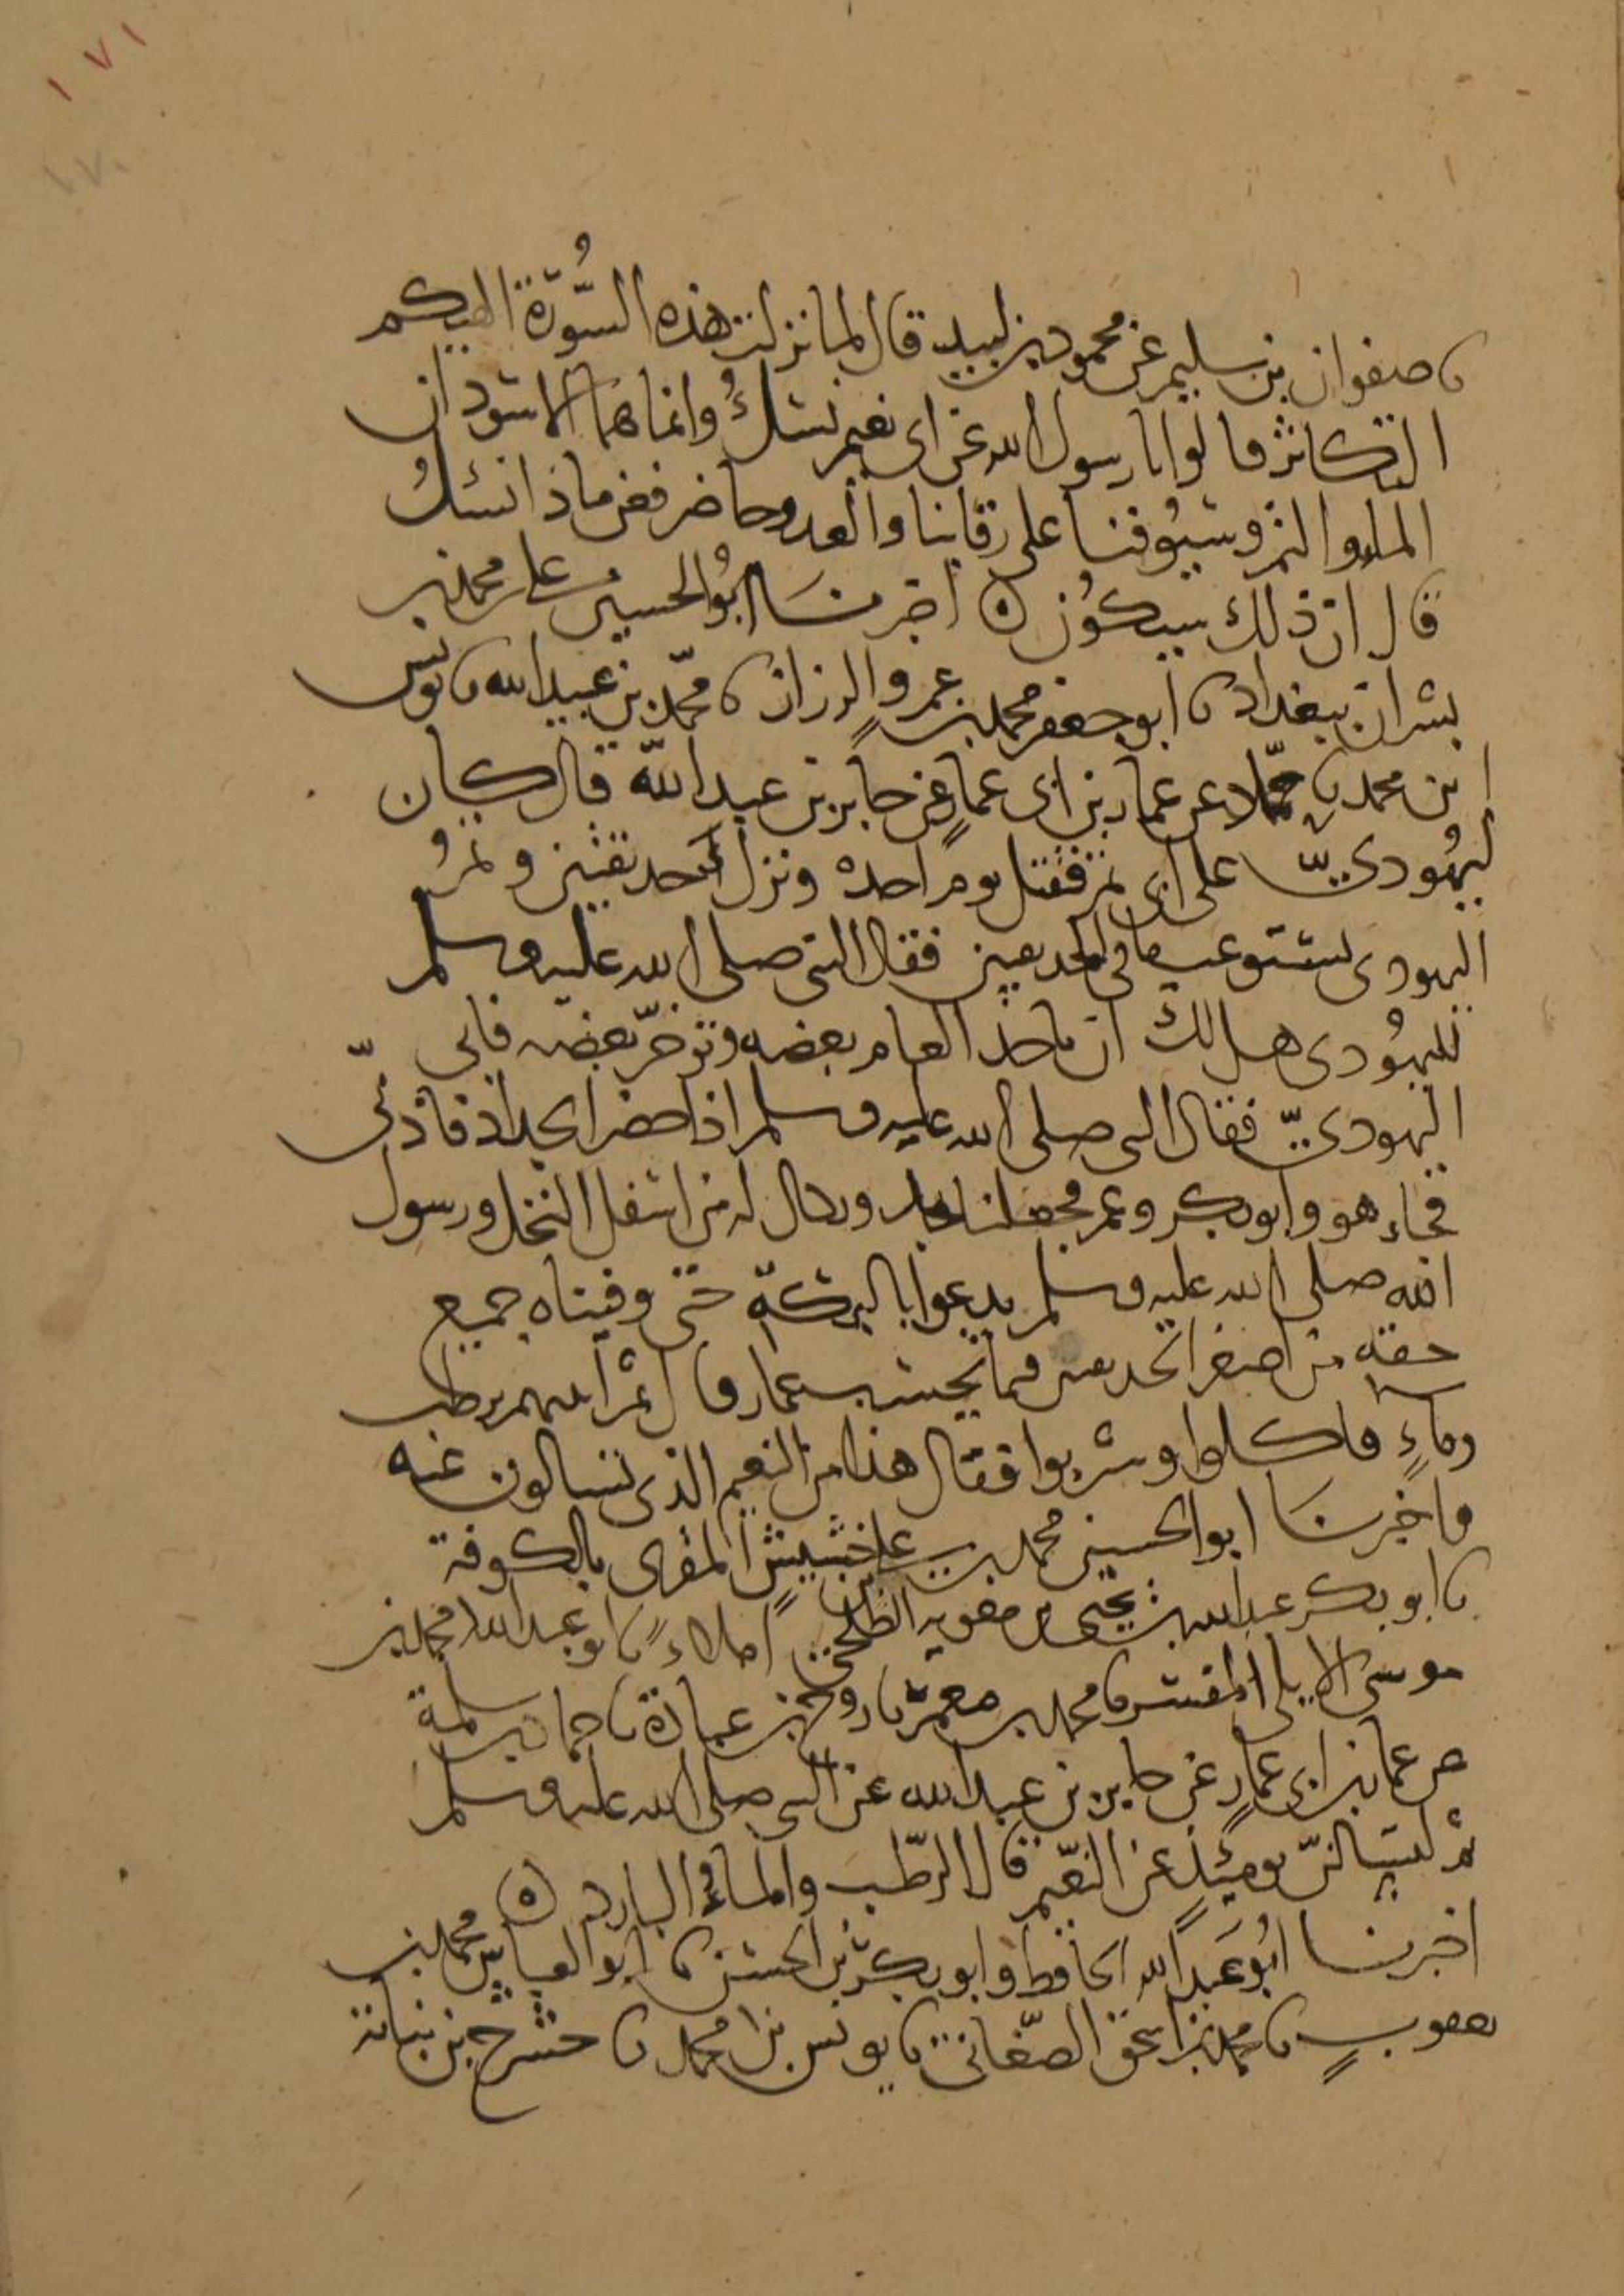 ١٧١
١٧٠
نا صفوان بن سليم عن محمود بن لبيد قال لما نزلت هذه السُّورة الهيكم
التكاثر قالوا يا رسول الله عن اي نعيم نسئلُ وانما هما الاسودان
الماء والتمر وسيُوفنا على رقابنا والعدو حاضر فعن ماذا نسئلُ
قال ان ذلك سيكُون ٥ اخبرنا ابُو الحسين علي بن محمد بن
بشران ببغداد نا ابو جعفر محمد بن عمرو الرزاز نا محمّد بن عبيد الله نا يونس
ابن محمد نا حمّاد عن عمار بن ابي عمارٍ عن جابر بن عبد الله قال كان
ليهُوديّ على ابي تمر فقتل يوم احد وترك حديقتين وتمرُ
اليهودي يستوعب ما في الحديقتين فقال النبي صلى الله عليه وسلم
لليهُودي هل لك ان تاخذ العام بعضه وتوخرّ بعضه فابى
اليهوديّ فقال النبي صلى الله عليه وسلم اذا حضر الجداد فاذنّي
فجاء هو وابو بكر وعمر فجعلنا نجد ويكال له من اسفل النخل ورسول
الله صلى الله عليه وسلم يدعوا بالبركة حتى وفيناه جميع
حقه من اصغر الحديقتين فيما يحسب عمار قال ثم اتيتهم برطب
وماءٍ فاكلوا وشربوا فقال هذا من النعيم الذي تسالون عنه
واخبرنا ابو الحسين محمد بن علي بن خشيش المقرى بالكوفة
نا ابو بكر عبد الله بن يحيى بن معوية الطلحي املاءً نا ابو عبد الله محمد بن
موسى الابلي المفسر نا محمد بن معمر نا روح بن عبادة نا حماد بن سلمة
عن عمار بن ابي عمارٍ عن جابر بن عبد الله عن النبي صلى الله عليه وسلم
ثم لتسالنّ يومئذٍ عن النعيم قال الرّطب والماءُ البارد ٥
اخبرنا ابُو عَبد الله الحافظ وابو بكر بن الحسن نا ابو العباس محمد بن
يعقوبٍ نا محمد بن اسحق الصّغاني نا يونس بن محمد نا حشرج بن نباتة